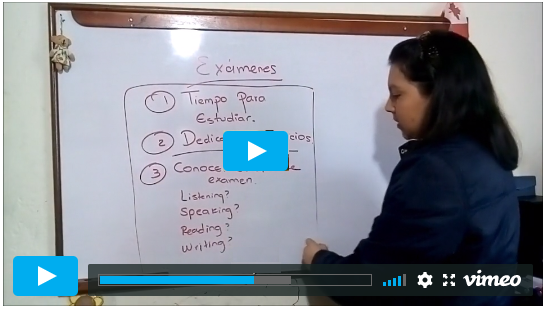 Exámenes
1 Tiempo para
Estudiar.
2
3
examen
Listening?
Speaking?
Reading?
Writing?
vimeo